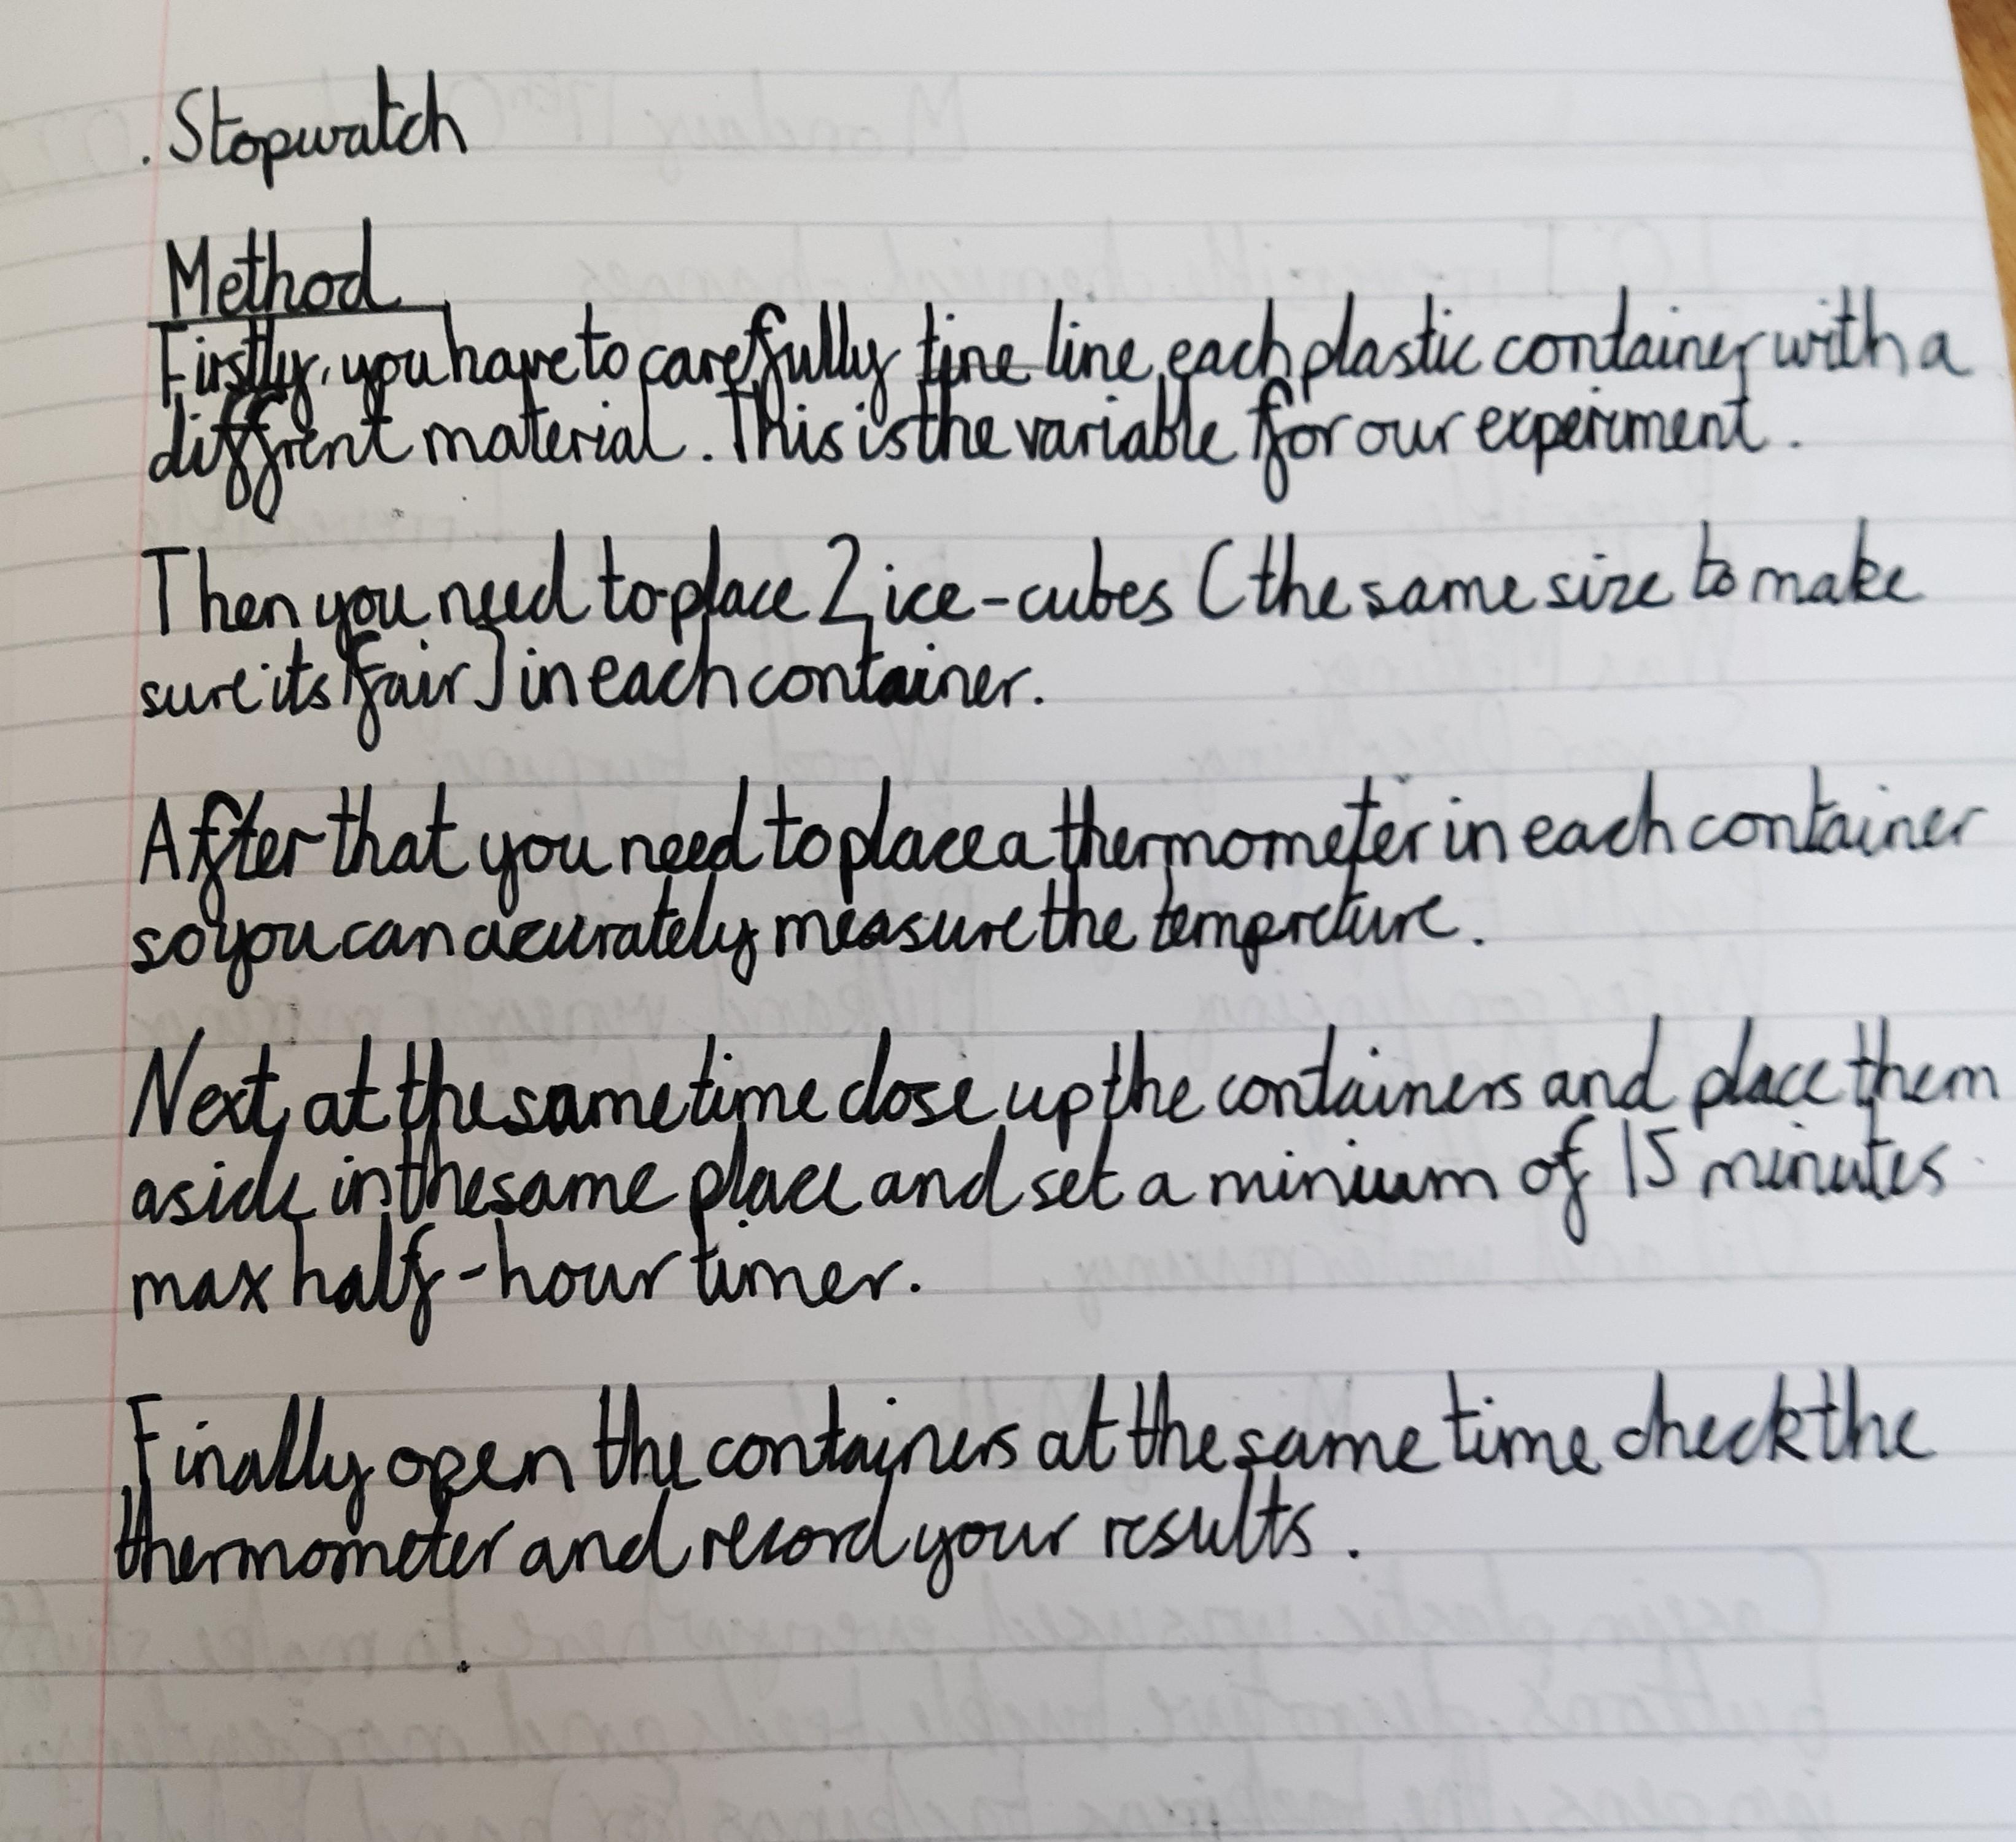 . Stopwatch
Method
Firstly, you have to carefully tine line each plastic container with a
diffrent material. This is the variable for our experiment.
Then you need to place 2 ice-cubes (the same size to make
sure its fair) in each container.
After that you need to place a thermometer in each container
so you can acurately measure the tempreture.
Next, at the same time close up the containers and place them
aside in the same place and set a minium of 15 minutes
max half-hour timer.
Finally open the containers at the same time check the
thermometer and record your results.